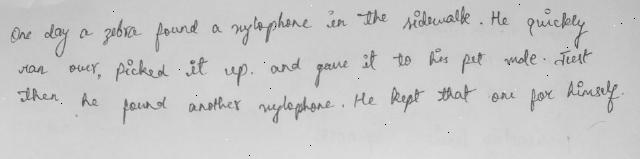 One day a zebra found a xylophone in the sidewalk. He quickly
ran over, picked it up. and gave it to his pet mole. Just
then. he found another xylophone. He kept that one for himself.